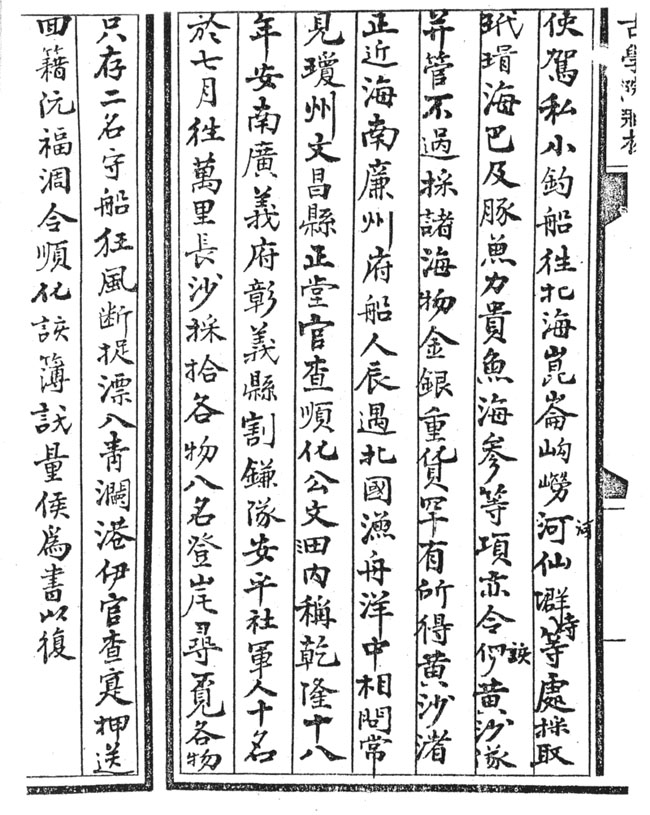 使駕私小釣船往北海崑崙岣嶗河仙群等處採取
河
玳瑁海巴及豚魚力貴魚海參等項亦令併黃沙隊
該
并管不過採諸海物金銀重貨罕有所得黃沙渚
正近海南廉州府船人辰遇北國漁舟洋中相問常
見瓊州文昌縣正堂官查順化公文內稱乾隆十八
年安南廣義府彰義縣割鎌隊安平社軍人十名
於七月往萬里長沙採拾各物八名登岸尋覓各物
只存二名守船狂風断捉漂入青瀾港伊官查寔押送
回籍沅福淍令順化該簿識量侯為書以復